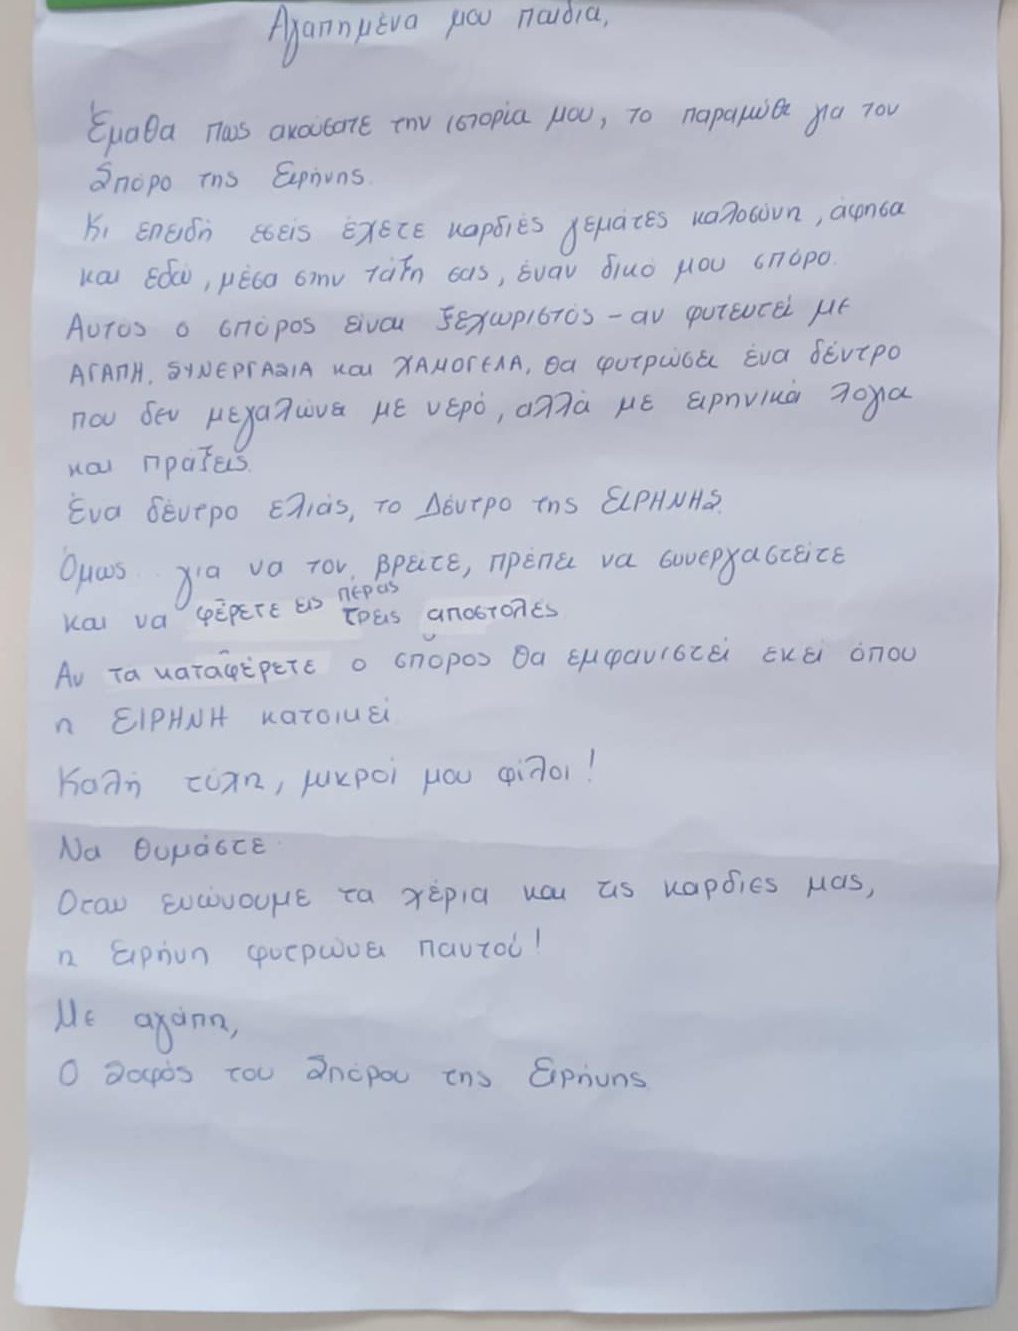 Αγαπημένα μου παιδιά,
Έμαθα πως ακούσατε την ιστορία μου, το παραμύθι για τον
Σπόρο της Ειρήνης.
Κι επειδή εσείς έχετε καρδιές γεμάτες καλοσύνη, άφησα
και εδώ, μέσα στην τάξη σας, έναν δικό μου σπόρο.
Αυτός ο σπόρος είναι ξεχωριστός - αν φυτευτεί με
ΑΓΑΠΗ, ΣΥΝΕΡΓΑΣΙΑ και ΧΑΜΟΓΕΛΑ, θα φυτρώσει ένα δέντρο
που δεν μεγαλώνει με νερό, αλλά με ειρηνικά λόγια
και πράξεις.
Ένα δέντρο ελιάς, το Δέντρο της ΕΙΡΗΝΗΣ.
Όμως.. για να τον βρείτε, πρέπει να συνεργαστείτε
και να φέρετε εις πέρας τρεις αποστολές
Αν τα καταφέρετε ο σπόρος θα εμφανιστεί εκεί όπου
η ΕΙΡΗΝΗ κατοικεί
Καλή τύχη, μικροί μου φίλοι!
Να θυμάστε
Οταν ενώνουμε τα χέρια και τις καρδιές μας,
η ειρήνη φυτρώνει παντού!
Με αγάπη,
Ο Σοφός του Σπόρου της Ειρήνης